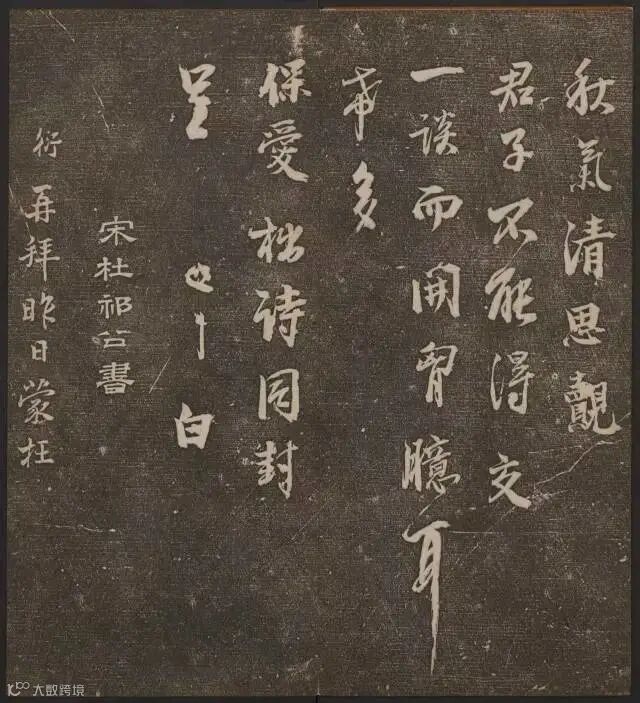 秋氣清思覿
君子不能得交
一談而開胷臆耳
希多
保愛拙詩同封
呈 白
宋杜祁公書
衍再拜昨日蒙枉
大数跨境